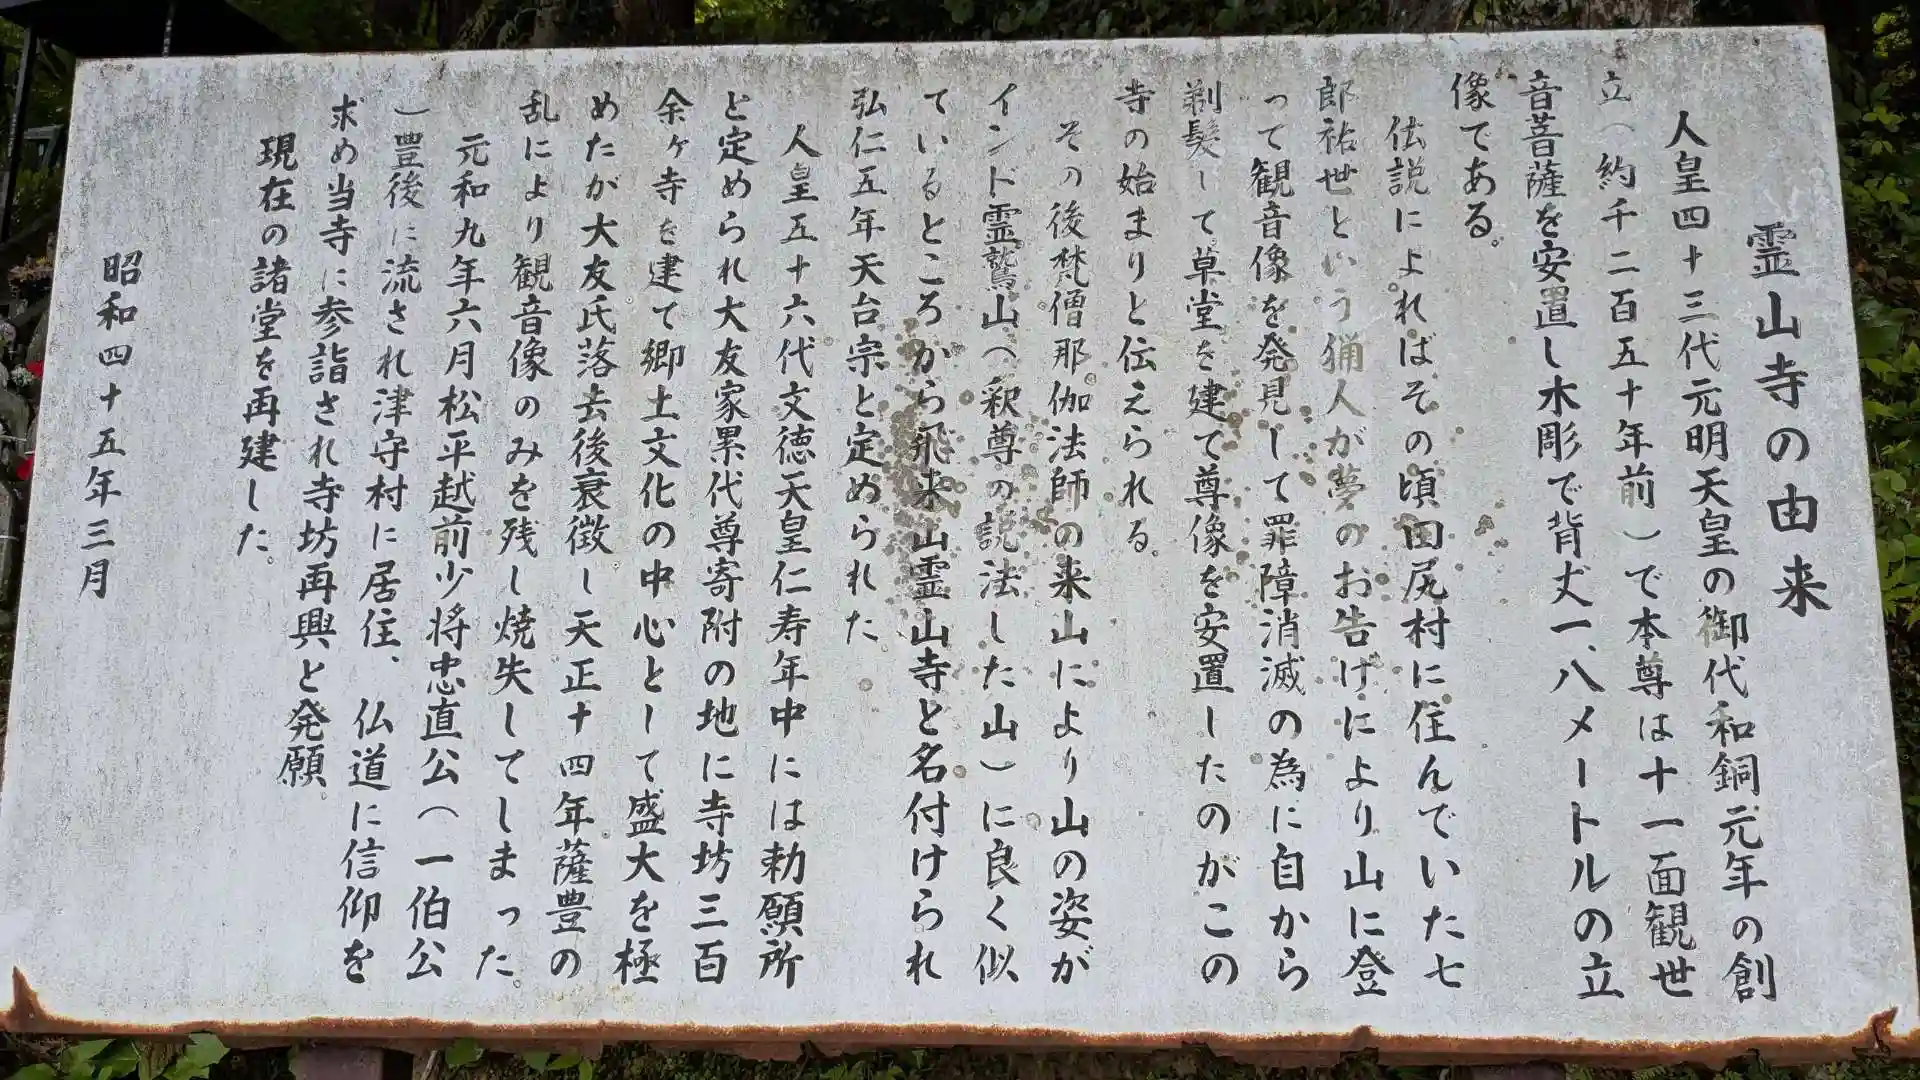 霊山寺の由来
人皇四十三代元明天皇の御代和銅元年の創
立（約千二百五十年前）で本尊は十一面観世
音菩薩を安置し木彫で背丈一、八メートルの立
像である。
伝説によればその頃田尻村に住んでいた七
郎祐世という猟人が夢のお告げにより山に登
って観音像を発見して罪障消滅の為に自から
剃髪して草堂を建て尊像を安置したのがこの
寺の始まりと伝えられる。
その後梵僧那伽法師の来山により山の姿が
インド霊鷲山（釈尊の説法した山）に良く似
ているところから飛来山霊山寺と名付けられ
弘仁五年天台宗と定められた
人皇五十六代文徳天皇仁寿年中には勅願所
と定められ大友家累代尊寄附の地に寺坊三百
余ヶ寺を建て郷土文化の中心として盛大を極
めたが大友氏落去後衰微し天正十四年薩豊の
乱により観音像のみを残し焼失してしまった。
元和九年六月松平越前少将忠直公（一伯公
）豊後に流され津守村に居住、仏道に信仰を
求め当寺に参詣され寺坊再興と発願。
現在の諸堂を再建した。
昭和四十五年三月